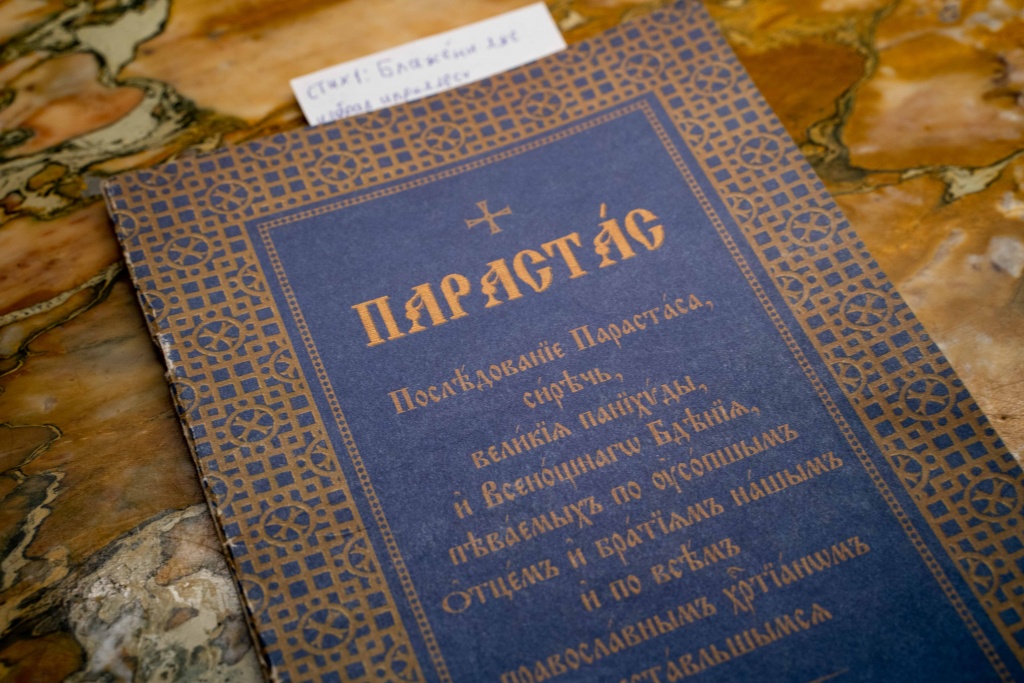 стих1: Блаже́ни яже
ПАРАСТА́С
Послѣ́дованїе Параста́са,
си́рѣчь,
вели́кїѧ панїхѵ́ды,
и҆ Всено́щнагѡ Бдѣ́нїѧ,
пѣва́емыхъ по ᲂу҆со́пшымъ
Ѻ҆тцє́мъ и҆ бра́тїѧмъ на́шымъ
и҆ по всѣ́мъ
правосла́внымъ хрⷭ҇тїа́нѡмъ
ста́вльшымсѧ